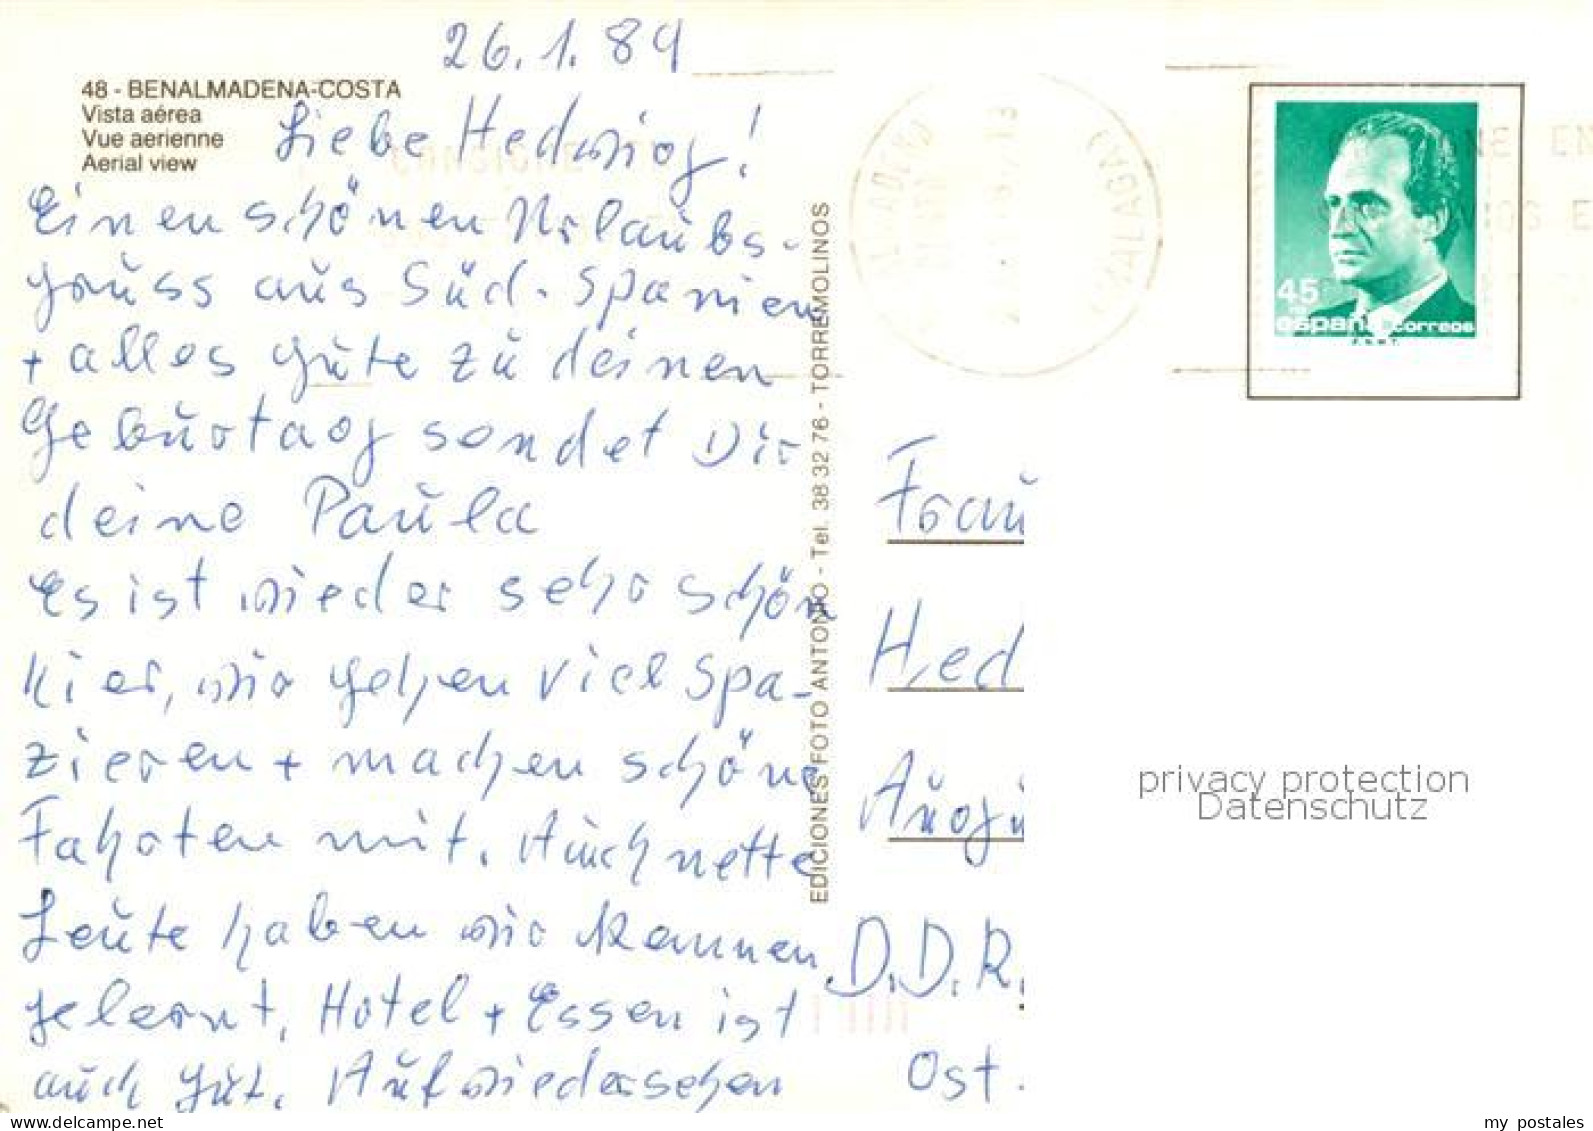 26.1.89
48 - BENALMADENA-COSTA
Vista aérea
Vue aerienne
Aerial view
Liebe Hedwig!
Einen schönen Urlaubs-
gruss aus Süd-Spanien
+ alles gute zu deinen
Geburtag sendet Dir
deine Paula
Es ist wieder sehr schön
hier, wir gehen viel Spa-
zieren + machen schöne
Fahrten mit. Auch nette
Leute haben wir kennen
gelernt, Hotel + Essen ist
auch gut. Aufwiedersehen
EDICIONES FOTO ANTONIO - Tel. 38 32 76 - TORREMOLINOS
45
españa correos
F.N.M.T.
Frau
Hed
Augu
D.D.R.
Ost.
privacy protection
Datenschutz
my postales